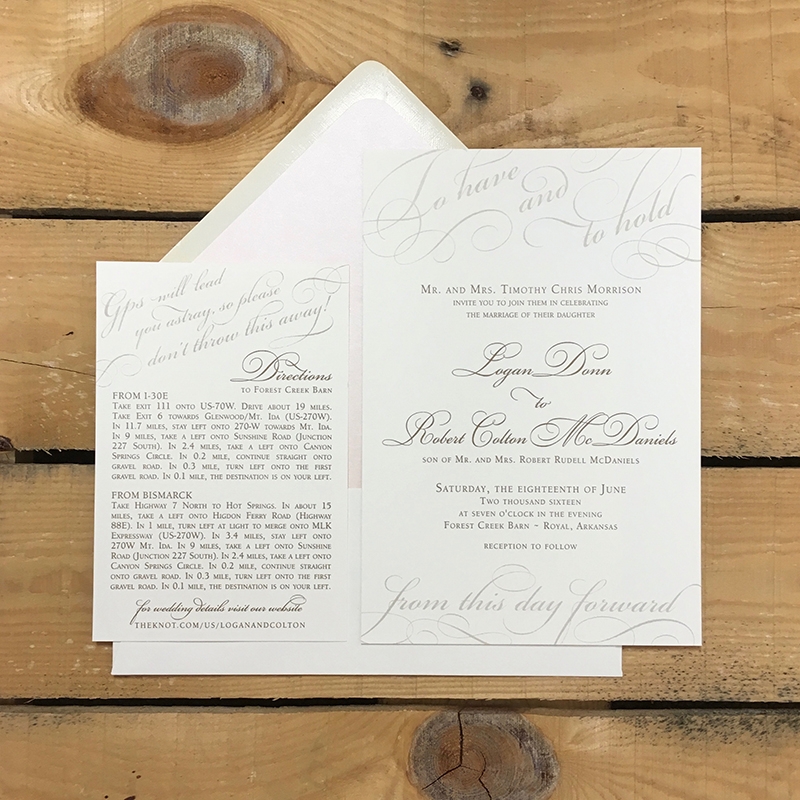 Gps will lead
you astray, so please
don't throw this away!
Directions
to Forest Creek Barn
FROM I-30E
Take exit 111 onto US-70W. Drive about 19 miles.
Take Exit 6 towards Glenwood/Mt. Ida (US-270W).
In 11.7 miles, stay left onto 270-W towards Mt. Ida.
In 9 miles, take a left onto Sunshine Road (Junction
227 South). In 2.4 miles, take a left onto Canyon
Springs Circle. In 0.2 mile, continue straight onto
gravel road. In 0.3 mile, turn left onto the first
gravel road. In 0.1 mile, the destination is on your left.
FROM BISMARCK
Take Highway 7 North to Hot Springs. In about 15
miles, take a left onto Higdon Ferry Road (Highway
88E). In 1 mile, turn left at light to merge onto MLK
Expressway (US-270W). In 3.4 miles, stay left onto
270W Mt. Ida. In 9 miles, take a left onto Sunshine
Road (Junction 227 South). In 2.4 miles, take a left onto
Canyon Springs Circle. In 0.2 mile, continue straight
onto gravel road. In 0.3 mile, turn left onto the first
gravel road. In 0.1 mile, the destination is on your left.
for wedding details visit our website
THEKNOT.COM/US/LOGANANDCOLTON
To have
and
to hold
Mr. and Mrs. Timothy Chris Morrison
invite you to join them in celebrating
the marriage of their daughter
Logan Donn
to
Robert Colton McDaniels
son of Mr. and Mrs. Robert Rudell McDaniels
Saturday, the eighteenth of June
Two thousand sixteen
at seven o'clock in the evening
Forest Creek Barn ~ Royal, Arkansas
reception to follow
from this day forward